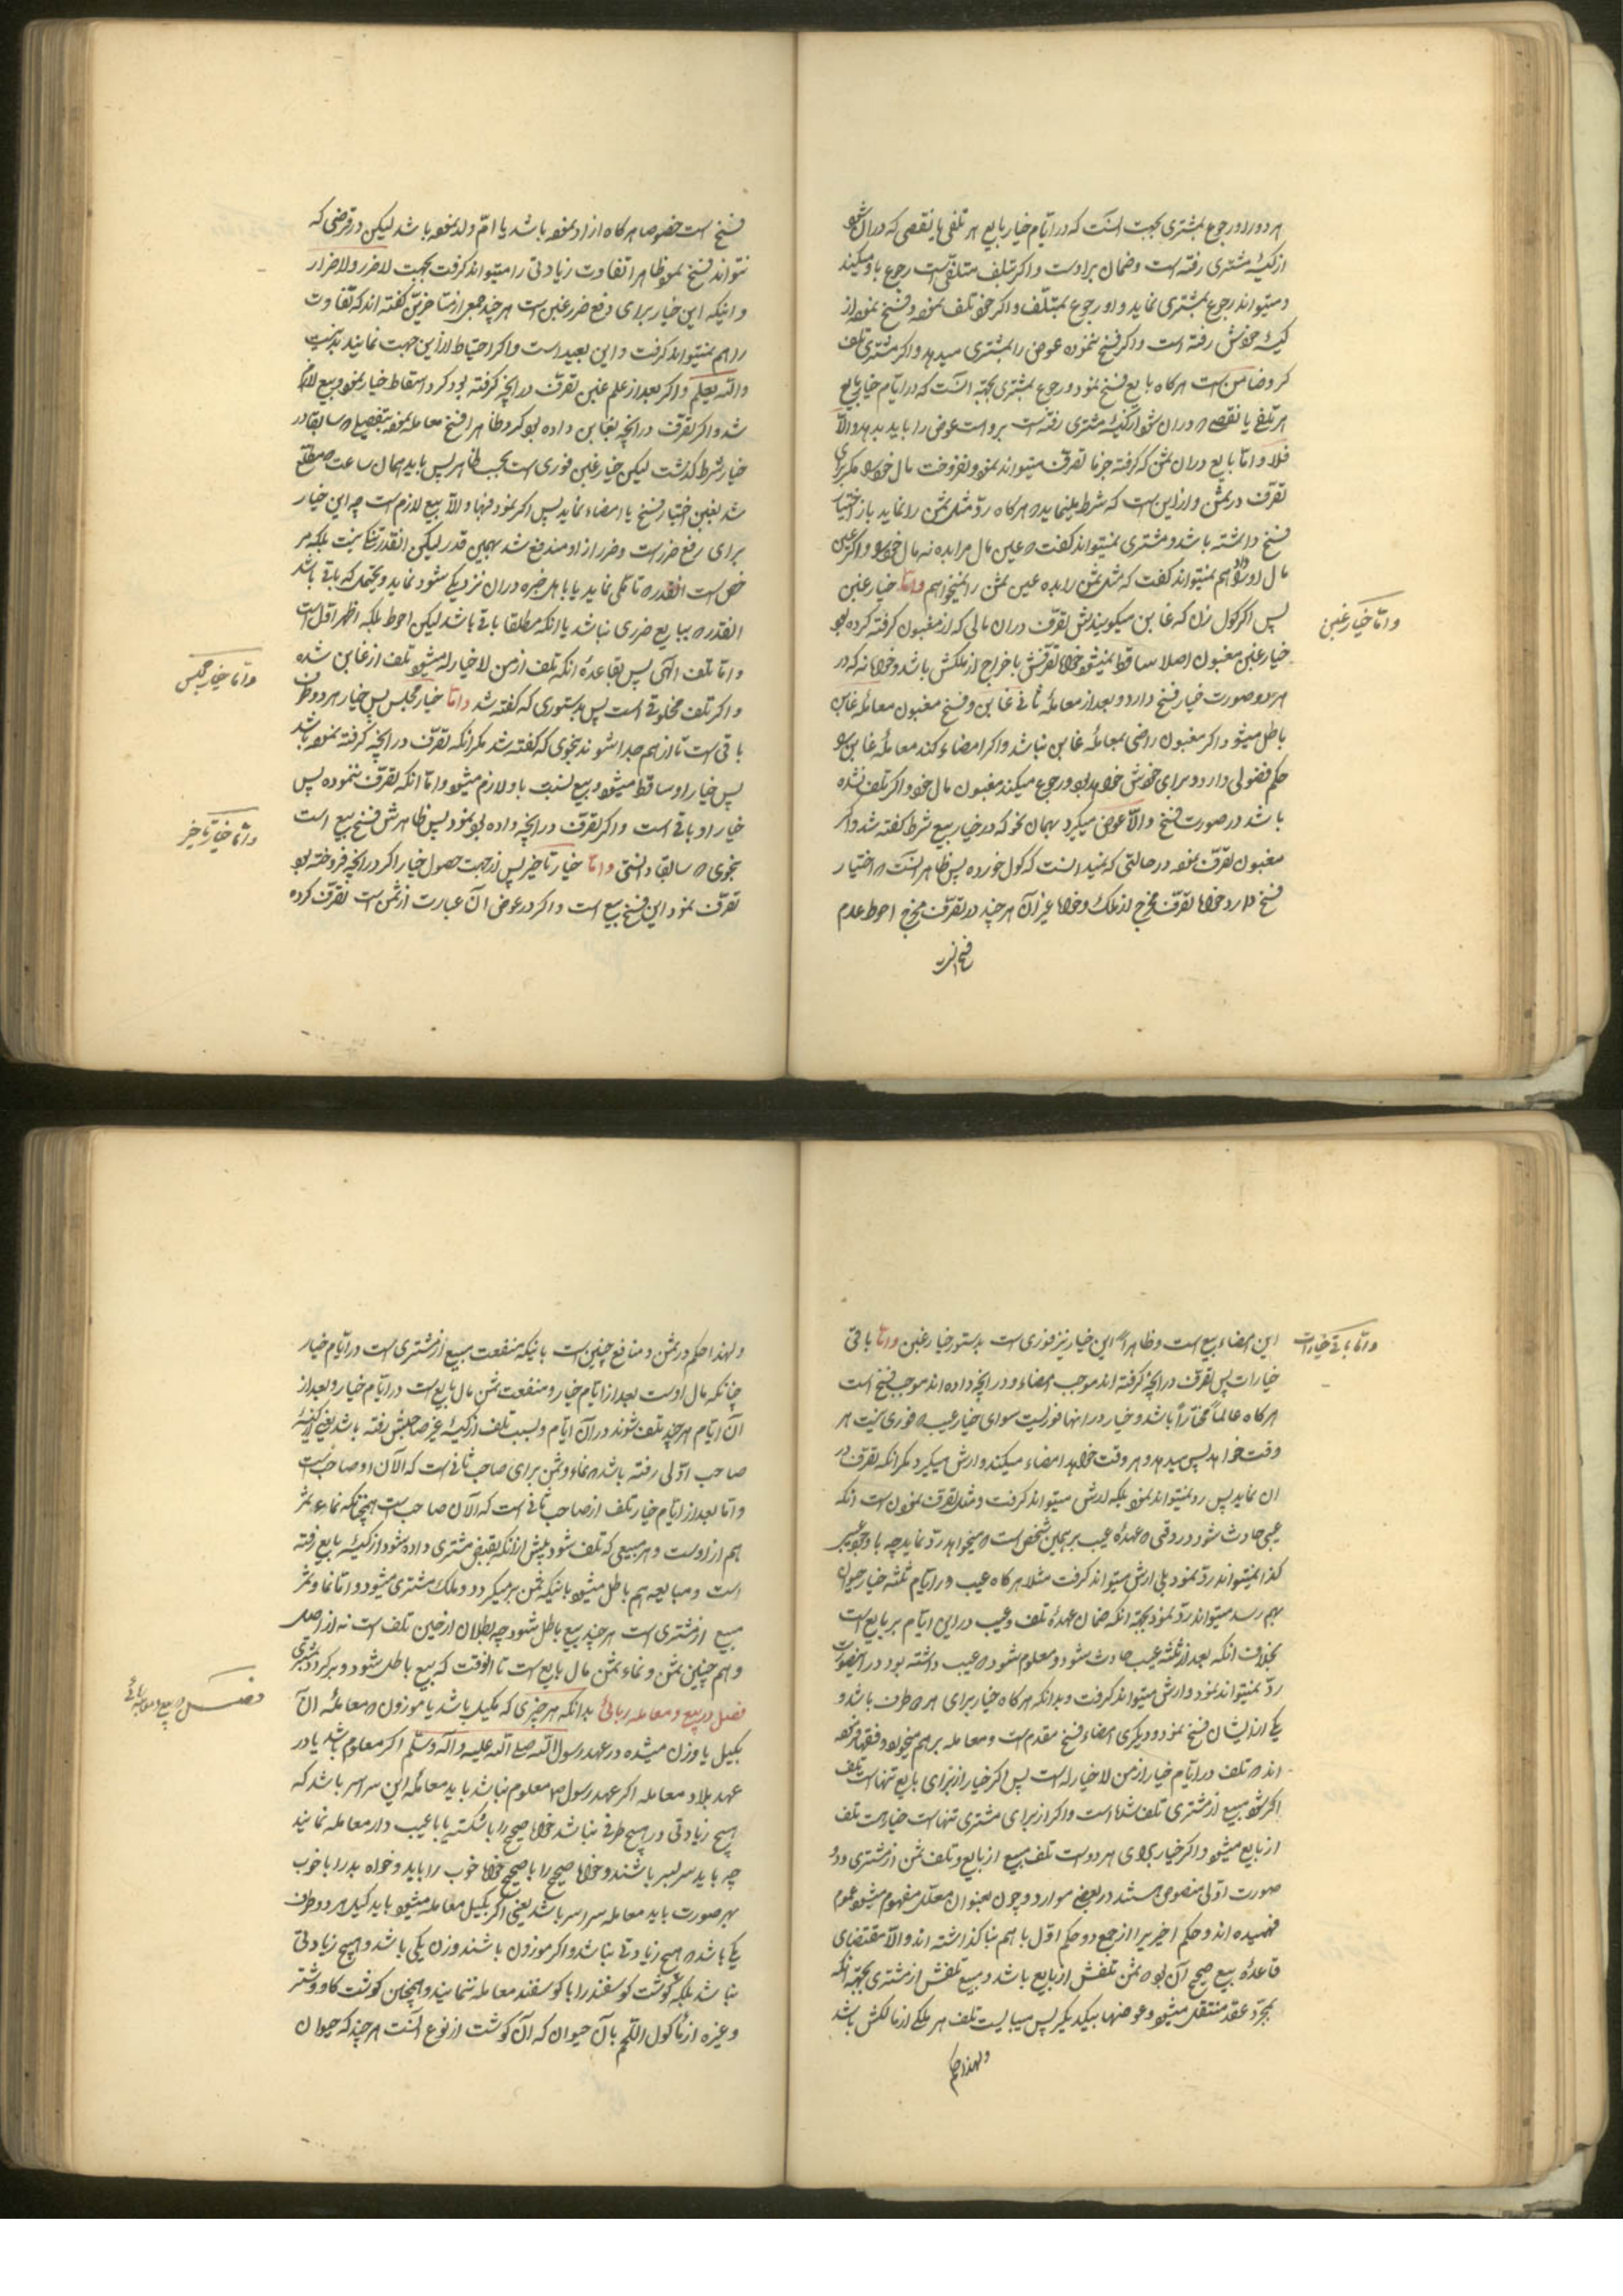 هر دو را و رجوع بمشتری بجهت انست که در ایام خیار بایع هر تلفی یا نقصی که در ان شود
از کیسهٔ مشتری رفته است وضمان بر اوست واکر تلف متلفی است رجوع باو میکند
ومیتواند رجوع بمشتری نماید واو رجوع بمتلف واکر خود تلف نموده وفسخ نموده از
کیسهٔ خودش رفته است واکر فسخ ننموده عوض را بمشتری میدهد واکر مشتری تلف
کرد ضامن است هرکاه بایع فسخ نمود ورجوع بمشتری بجهة انست که در ایام خیار بایع
هر تلفی یا نقصی که در ان شود از کیسهٔ مشتری رفته است بر اوست عوض را باید بدهد والّا
فلا وامّا بایع در ان ثمن که کرفته جزما تصرف میتواند نمود ونفروخت مال خود را مکر برای
تصرف در ثمن واز این است که شرط مینماید که هرکاه ردّ مثل ثمن را نماید باز اختیار
فسخ داشته باشد ومشتری نمیتواند کفت که عین مال مرا بده نه مال خود را واکر عین
مال او را داد هم نمیتواند کفت که مثل ثمن را بده عین ثمن را نمیخواهم وامّا خیار غبن
وامّا خیار غبن
پس اکر کول زن که غابن میکویندش تصرف در ان مالی که از مغبون کرفته کرده بود
خیار غبن مغبون اصلا ساقط نمیشود خواه تصرفش باخراج از ملکش باشد وخواه نه که در
هر دو صورت خیار فسخ دارد وبعد از معاملهٔ ثانی غابن وفسخ مغبون معاملهٔ غابن
باطل میشود اکر مغبون راضی بمعاملهٔ غابن نباشد واکر امضاء کند معاملهٔ غابن را
حکم فضولی دارد وبرای خودش خواهد بود ورجوع میکند مغبون مال خود واکر تلف نشده
باشد در صورت فسخ والّا عوض میکیرد بهمان نحو که در خیار بیع شرط کفته شد واکر
مغبون تصرف نموده در حالتی که نمیدانست که کول خورده پس ظاهر انست که اختیار
فسخ دارد خواه تصرف مخرج از ملک وخواه غیر آن هر چند در تصرف مخرج احوط عدم
فسخ است
فسخ است خصوصا هرکاه ازاد نموده باشد یا امّ ولد نموده باشد لیکن در فرضی که
نتواند فسخ نمود ظاهرا تفاوت زیادتی را میتواند کرفت بجهت لاضرر ولاضرار
واینکه این خیار برای دفع ضرر غبن است هر چند جمعی از متاخرین کفته اند که تفاوت
را هم نمیتواند کرفت واین بعید است واکر احتیاط از این جهت نمایند بد نیست
والله یعلم واکر بعد از علم غبن تصرف در انچه کرفته بود کرد اسقاط خیار نموده وبیع لازم
شد واکر تصرف در انچه بغابن داده بود کرد ظاهرا فسخ معامله نموده بتفصیلی که سابقا در
خیار شرط کذشت لیکن خیار غبن فوری است بحسب ظاهر پس باید همان ساعت که مطلع
شد بغبن اختیار فسخ یا امضاء نماید پس اکر نمود فبها والّا بیع لازم است چه این خیار
برای رفع ضرر است وضرر از او مندفع شد بهمین قدر لیکن انقدر تنک نیست بلکه مر
خص است انقدر که تاملی نماید یا با اهل خبره در ان نزدیکی شود نماید ویحتمل که باقی باشد
انقدر که ببایع ضرری نباشد یا انکه مطلقا باقی باشد لیکن احوط بلکه اظهر اول است
وامّا تلف الهی پس بقاعدهٔ انکه تلف از من لاخیار له میشود تلف از غابن شده
وامّا خیار مجلس
واکر تلف مخلوقی است پس بدستوری که کفته شد وامّا خیار مجلس پس خیار هر دو طرف
باقی است تا از هم جدا شوند بنحوی که کفته شد مکر انکه تصرف در انچه کرفته نموده باشد
پس خیار او ساقط میشود وبیع نسبت باو لازم میشود وامّا انکه تصرف ننموده پس
خیار او باقی است واکر تصرف در انچه داده بود نمود پس ظاهرش فسخ بیع است
وامّا خیار تاخیر
بنحوی که سابقا دانستی وامّا خیار تاخیر پس از جهت حصول خیار اکر در انچه فروخته بود
تصرف نمود این فسخ بیع است واکر در عوض ان عبارت از ثمن است تصرف کرده
وامّا باقی خیارات
این امضاء بیع است وظاهراً این خیار نیز فوری است بدستور خیار غبن وامّا باقی
خیارات پس تصرف در انچه کرفته اند موجب امضاء ودر انچه داده اند موجب فسخ است
هرکاه عالماً مختاراً باشد وخیار در انها فوریست سوای خیار عیب که فوری نیست هر
وقت خواهد پس میدهد وهر وقت خواهد امضاء میکند وارش میکیرد مکر انکه تصرف در
ان نماید پس رد نمیتواند نمود بلکه ارش میتواند کرفت ومثل تصرف نمودن است انکه
عیبی حادث شود در وقتی که عهدهٔ عیب بر همین شخص است که میخواهد ردّ نماید چه با وجود عیب
کذا نمیتواند ردّ نمود بلی ارش میتواند کرفت مثلا هرکاه عیب در ایام ثلثه خیار حیوان
بهم رسد میتواند ردّ نمود بجهة انکه ضمان عهدهٔ تلف وعیب در این ایام بر بایع است
بخلاف انکه بعد از ثلثه عیب حادث شود ومعلوم شود که عیب داشته بود در اینصورت
ردّ نمیتواند نمود وارش میتواند کرفت وبدانکه هرکاه خیار برای هر دو طرف باشد و
یکی از ایشان فسخ نمود ودیکری امضاء فسخ مقدم است ومعامله بر هم میخورد وفقها فرموده
اند که تلف در ایام خیار از من لاخیار له است پس اکر خیار از برای بایع تنها است تلف
اکر شود مبیع از مشتری تلف شده است واکر از برای مشتری تنها است خیار است تلف
از بایع میشود واکر خیار برای هر دو است تلف مبیع از بایع وتلف ثمن از مشتری ودو
صورت اولی منصوص هستند در بعضی موارد وچون بعنوان معلل مفهوم میشود عموم
فهمیده اند وحکم اخیر را از جمع دو حکم اول با هم بنا کذاشته اند والّا مقتضای
قاعدهٔ بیع صحیح آن بود که ثمن تلفش از بایع باشد ومبیع تلفش از مشتری بجهة انکه
بمجرّد عقد منتقل میشود وعوضها بیکدیکر پس میبایست تلف هر ملکی از مالکش باشد
ولهذا حکم
ولهذا حکم در ثمن ومنافع چنین است باینکه منفعت مبیع از مشتری است در ایام خیار
چنانکه مال اوست بعد از ایام خیار ومنفعت ثمن مال بایع است در ایام خیار وبعد از
آن ایام هر چند تلف شوند در آن ایام وبسبب تلف از کیسهٔ غیر صاحبش رفته باشد یعنی از کیسهٔ
صاحب اوّلی رفته باشد که نماء وثمن برای صاحب ثانی است که الآن او صاحب است
وامّا بعد از ایام خیار تلف از صاحب ثانی است که الآن صاحب است همچنانکه نماء وثمر
هم از اوست وهر مبیعی که تلف شود پیش از انکه بقبض مشتری داده شود از کیسهٔ بایع رفته
است ومبایعه هم باطل میشود باینکه ثمن بر میکردد وملک مشتری میشود وامّا نما وثمر
مبیع از مشتری است هر چند بیع باطل شود چه بطلان از حین تلف است نه از اصل
وهم چنین ثمن ونماء ثمن مال بایع است تا انوقت که بیع باطل شود وبر کردد بمشتری
فصل در بیع ومعامله ربائی
فصل در بیع ومعامله ربائی بدانکه هر چیزی که مکیل باشد یا موزون که معاملهٔ ان
بکیل یا وزن میشده در عهد رسول الله صلی الله علیه واله وسلم اکر معلوم باشد یا در
عهد بلاد معامله اکر عهد رسول ص معلوم نباشد باید معاملهٔ این سراسر باشد که
هیچ زیادتی در هیچ طرفی نباشد خواه صحیح را با شکسته یا با عیب دار معامله نمایند
چه باید سر بسر باشند وخواه صحیح را با صحیح خواه خوب را با بد وخواه بد را با خوب
بهر صورت باید معامله سراسر باشد یعنی اکر بکیل معامله میشود باید کیل هر دو طرف
یکی باشد که هیچ زیادتی نباشد واکر موزون باشند وزن یکی باشد وهیچ زیادتی
نباشد بلکه کوشت کوسفند را با کوسفند معامله ننمایند وهمچنین کوشت کاو وشتر
وغیره از ماکول اللحم با آن حیوان که آن کوشت از نوع آنست هر چند که حیوان